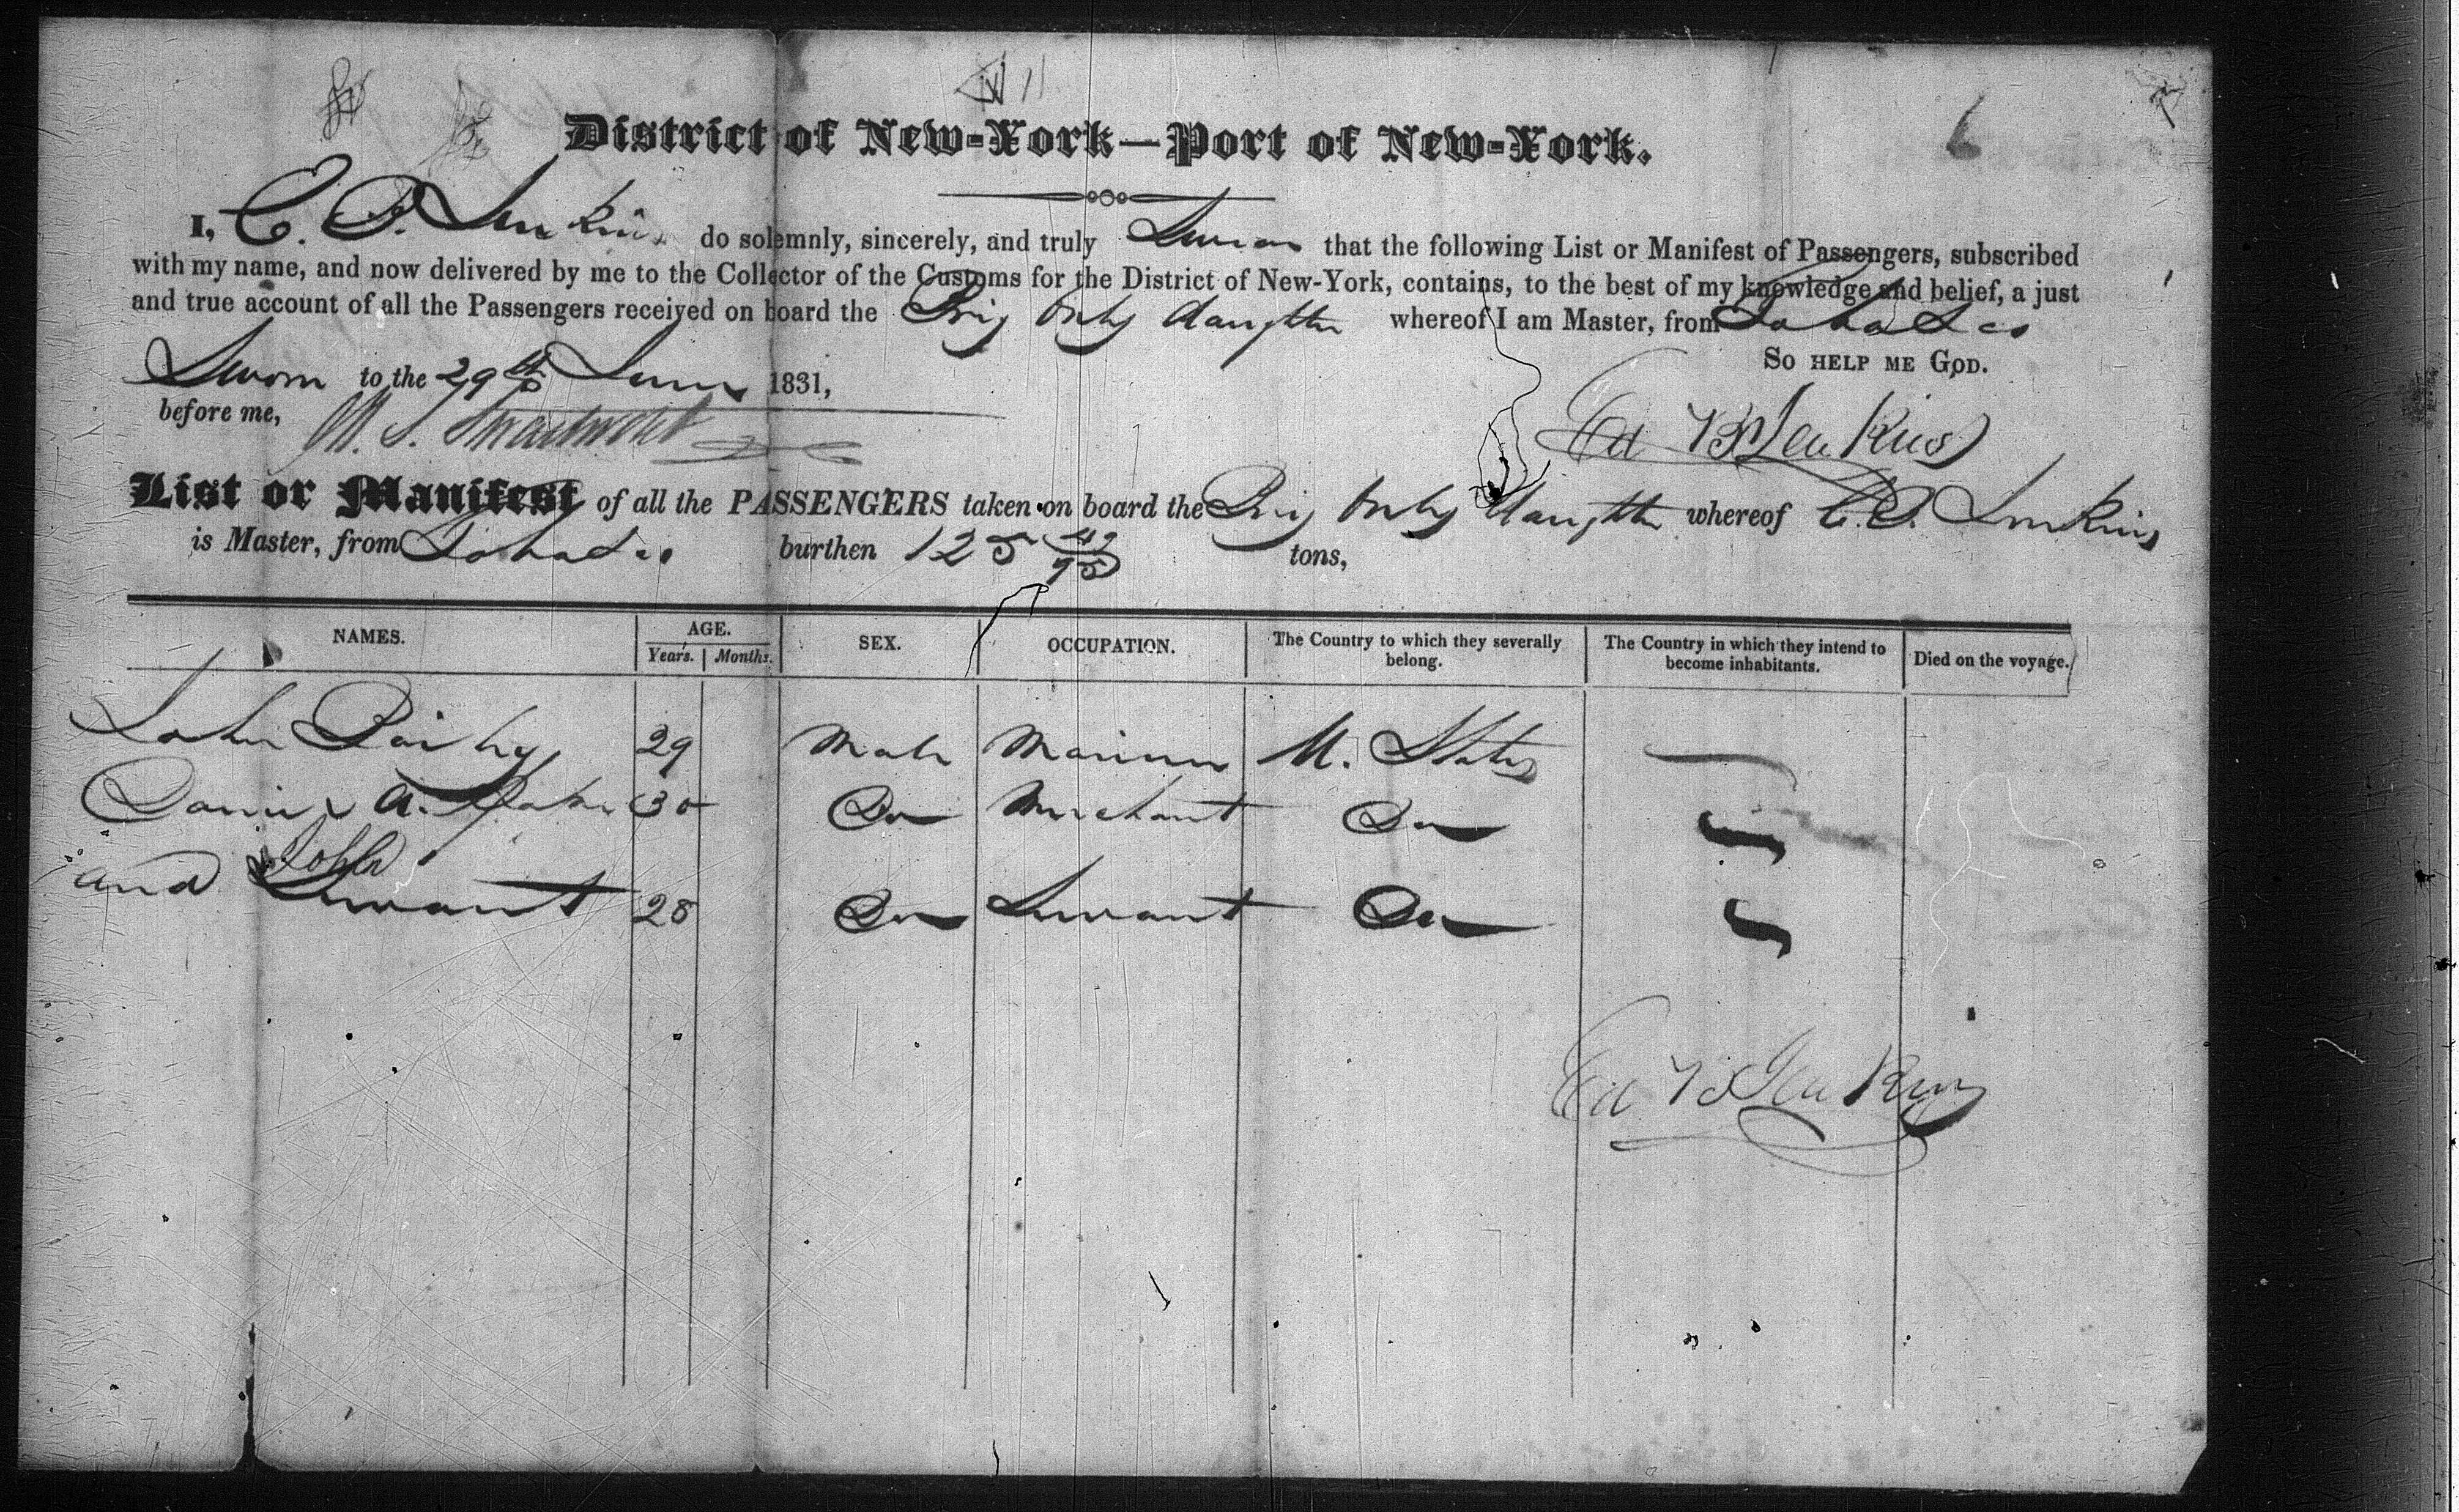 6
District of New-York—Port of New-York.
I, E. B. Jenkins do solemnly, sincerely, and truly Swear that the following List or Manifest of Passengers, subscribed
with my name, and now delivered by me to the Collector of the Customs for the District of New-York, contains, to the best of my knowledge and belief, a just
and true account of all the Passengers received on board the Brig Only daughter whereof I am Master, from
So help me God.
Sworn to the 29th June 1831,
before me,
Ed B Jenkins
List or Manifest of all the PASSENGERS taken on board the Brig Only daughter whereof E. B. Jenkins
is Master, from burthen 125 42/95 tons,
NAMES. AGE. SEX. OCCUPATION. The Country to which they severally belong. The Country in which they intend to become inhabitants. Died on the voyage.
Years. Months.
John 29 Male Mariner U. States
Daniel A. 30 Do Merchant Do
and John Servant 28 Do Servant Do
Ed B Jenkins